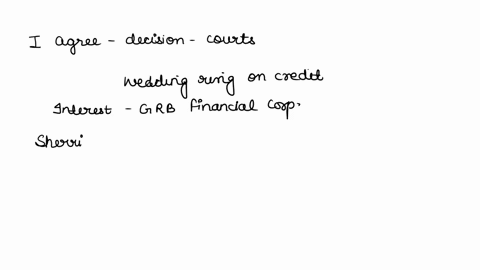 I agree - decision - courts
wedding ring on credit
Interest - GRB financial corp.
Sherri